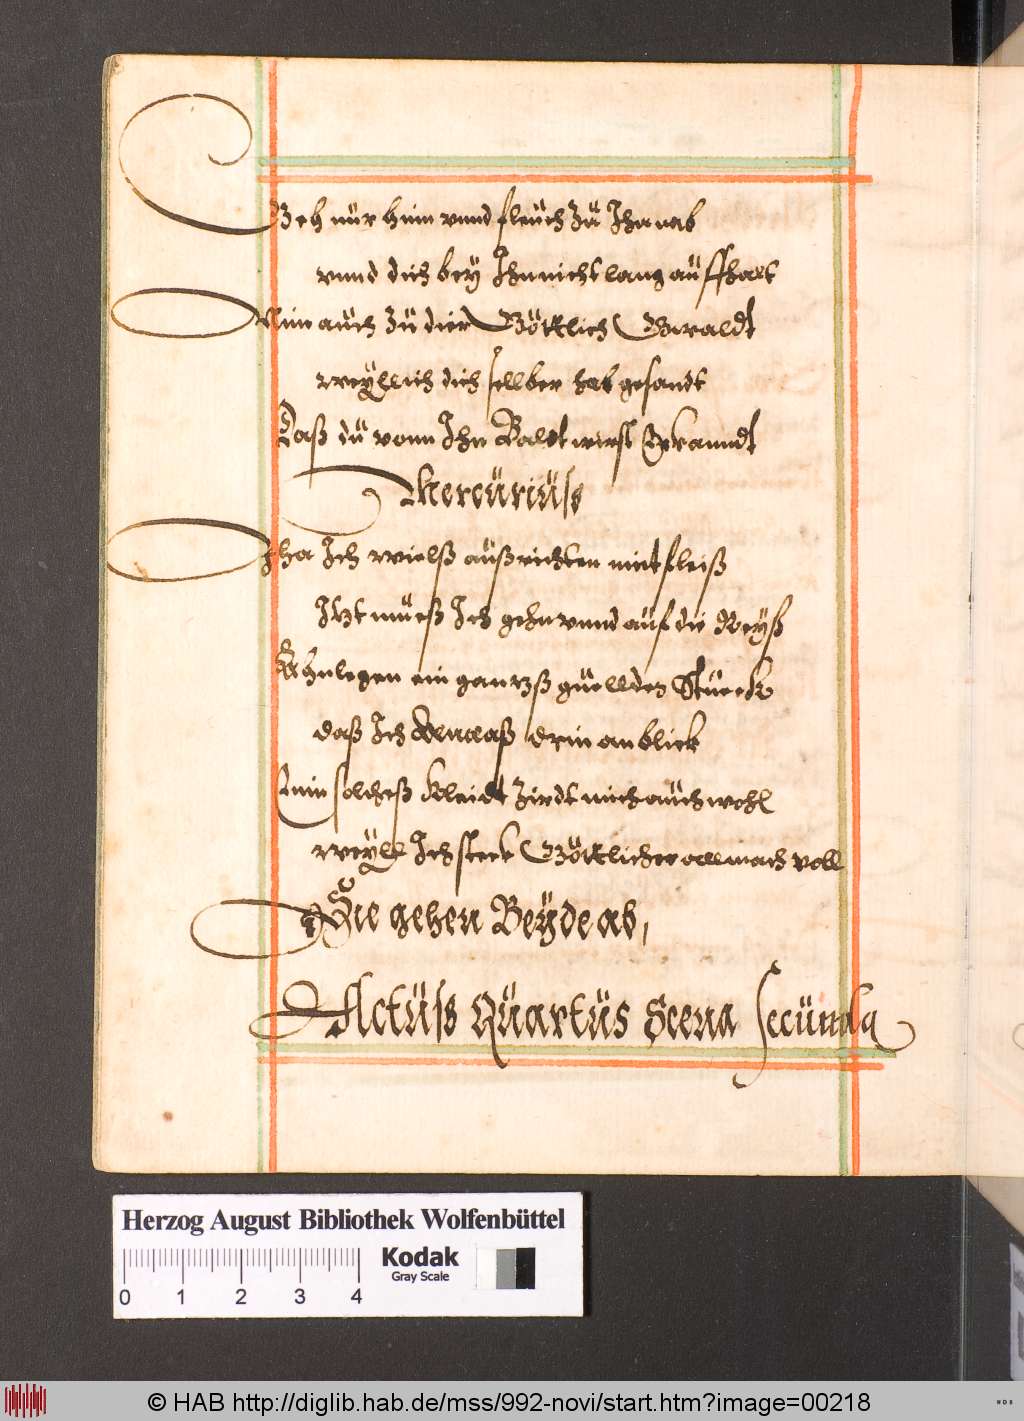 Geh nür hinn vnnd fleüch Zü Jhn rab
vnnd dich bey Jhn nicht lang aüffhalt
Nim aüch Zü dier Göttlich Gwaldt
weÿll ich dich sellber hab gesandt
Daß dü vonn Jhn Baldt wirst Erkanndt
Mercüriüss
Jha Jch wielß außrichten mit fleiß
Jtzt müeß Jch gehn vnnd aüf die Reÿß
Ahnlegen ein gantzß güelldes Stüeck
daß Jch Ettwaß drin anblick
Jnn solcheß Kleidt Zirdt mich aüch wohl
weÿll Jch steck Göttlicher allmach voll
Sie gehen Beÿde ab,
Actüss Qüartüs Scena Secünda
Herzog August Bibliothek Wolfenbüttel
Kodak
Gray Scale
0 1 2 3 4
© HAB http://diglib.hab.de/mss/992-novi/start.htm?image=00218